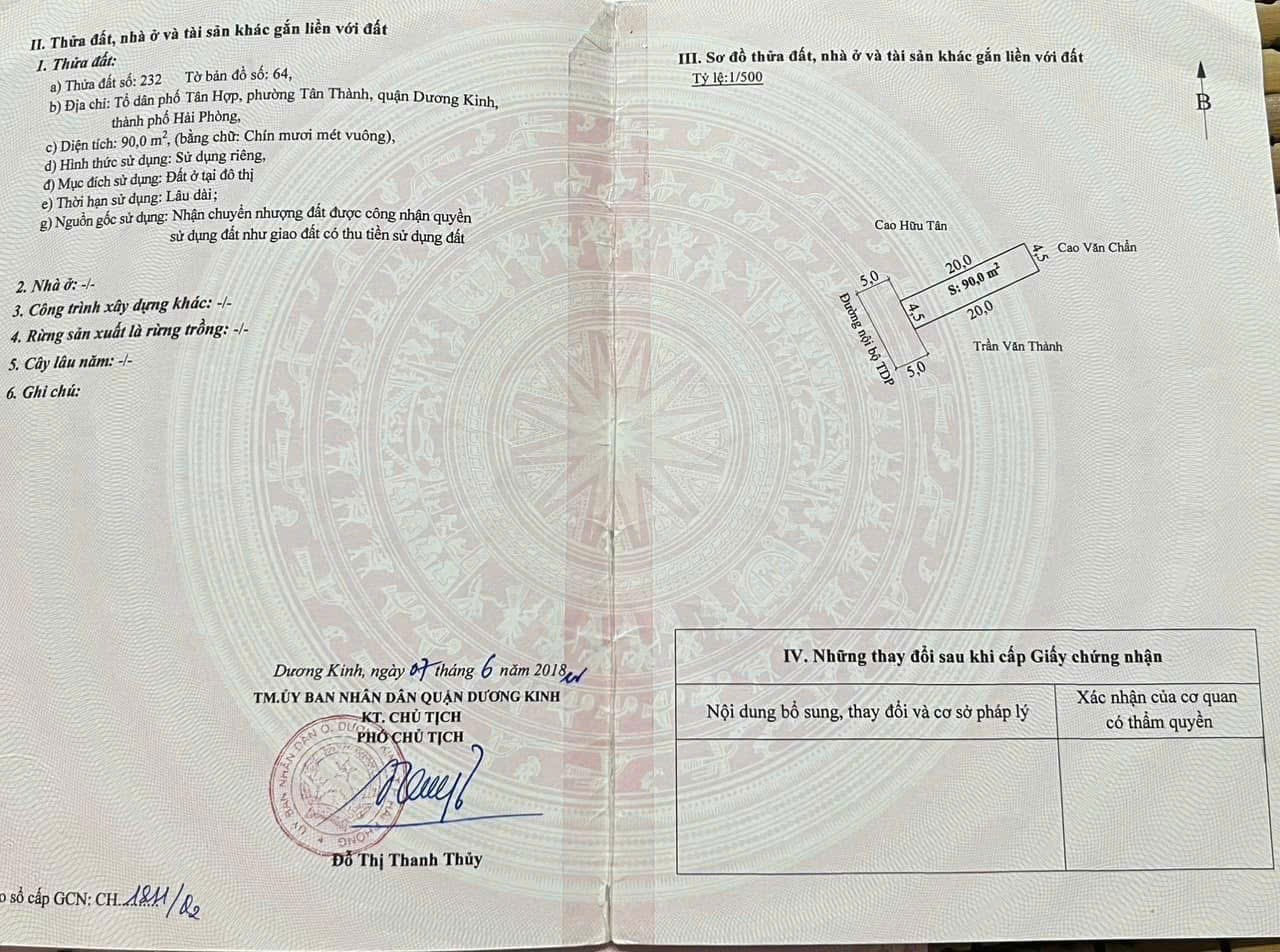 II. Thửa đất, nhà ở và tài sản khác gắn liền với đất
1. Thửa đất:
a) Thửa đất số: 232 Tờ bản đồ số: 64,
b) Địa chỉ: Tổ dân phố Tân Hợp, phường Tân Thành, quận Dương Kinh,
thành phố Hải Phòng,
c) Diện tích: 90,0 m², (bằng chữ: Chín mươi mét vuông),
d) Hình thức sử dụng: Sử dụng riêng,
đ) Mục đích sử dụng: Đất ở tại đô thị
e) Thời hạn sử dụng: Lâu dài;
g) Nguồn gốc sử dụng: Nhận chuyển nhượng đất được công nhận quyền
sử dụng đất như giao đất có thu tiền sử dụng đất
2. Nhà ở: -/-
3. Công trình xây dựng khác: -/-
4. Rừng sản xuất là rừng trồng: -/-
5. Cây lâu năm: -/-
6. Ghi chú:
Dương Kinh, ngày 07 tháng 6 năm 2018
TM.ỦY BAN NHÂN DÂN QUẬN DƯƠNG KINH
KT. CHỦ TỊCH
PHÓ CHỦ TỊCH
Đỗ Thị Thanh Thủy
o sổ cấp GCN: CH.
III. Sơ đồ thửa đất, nhà ở và tài sản khác gắn liền với đất
Tỷ lệ:1/500
B
Cao Hữu Tân
Cao Văn Chẩn
4,5
20,0
S: 90,0 m²
5,0
4,5
20,0
Đường nội bộ TDP
Trần Văn Thành
5,0
IV. Những thay đổi sau khi cấp Giấy chứng nhận
Nội dung bổ sung, thay đổi và cơ sở pháp lý
Xác nhận của cơ quan
có thẩm quyền